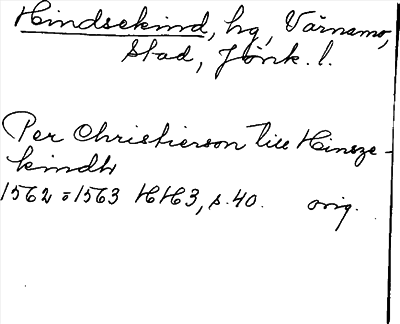 Hindsekind, hg, Värnamo,
Stad, Jönk. l.
Per Christierson till Hinsze-
kindh
1562 = 1563 HH3, s. 40. orig.